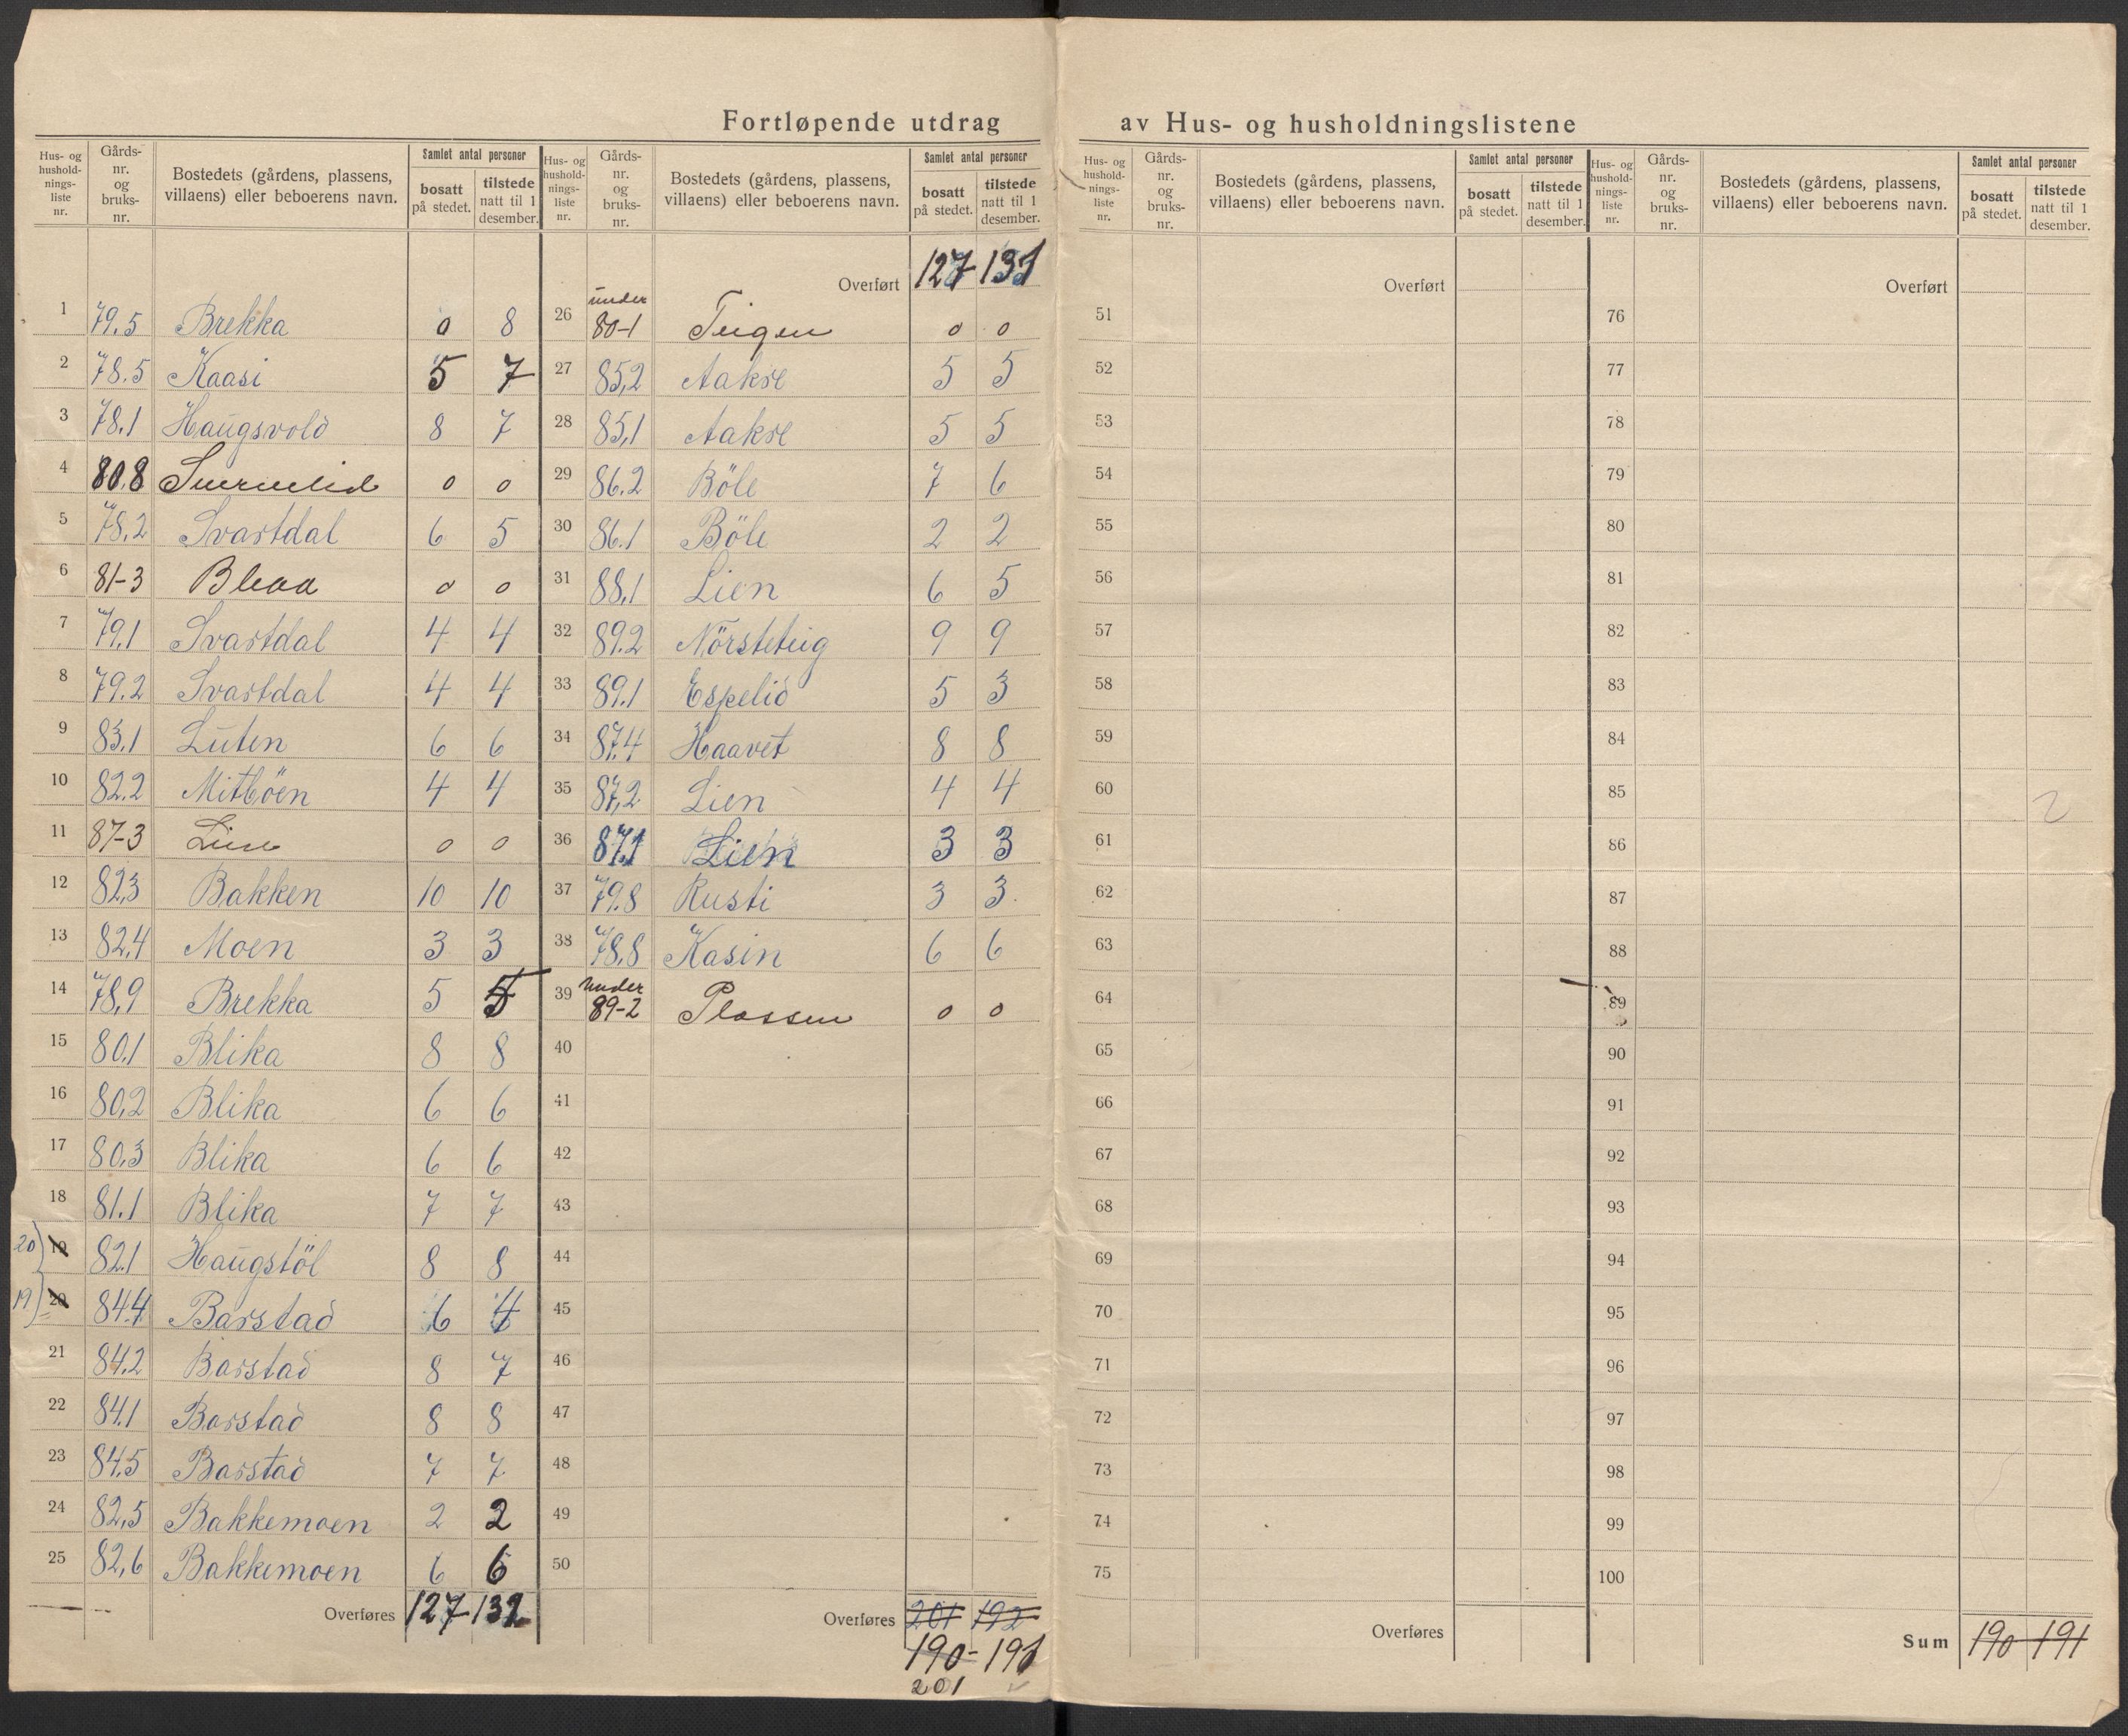 Fortløpende utdrag av Hus- og husholdningslistene
Hus- og hushold-nings-liste nr. Gårds-nr. og bruks-nr. Bostedets (gårdens, plassens, villaens) eller beboerens navn. Samlet antal personer bosatt på stedet. tilstede natt til 1 desember.
1 79.5 Brekka 0 8
2 78.5 Kaasi 5 7
3 78.1 Haugsvold 8 7
4 80.8 0 0
5 78.2 Svartdal 6 5
6 81-3 0 0
7 79.1 Svartdal 4 4
8 79.2 Svartdal 4 4
9 83.1 Luten 6 6
10 82.2 Mitböen 4 4
11 87-3 0 0
12 82.3 Bakken 10 10
13 82.4 Moen 3 3
14 78.9 Brekka 5 5
15 80.1 Blika 8 8
16 80.2 Blika 6 6
17 80.3 Blika 6 6
18 81.1 Blika 7 7
20) 19 82.1 Haugstöl 8 8
19) 20 84.4 Barstad 6 4
21 84.2 Barstad 8 7
22 84.1 Barstad 8 8
23 84.5 Barstad 7 7
24 82.5 Bakkemoen 2 2
25 82.6 Bakkemoen 6 6
Overføres 127 132
Hus- og hushold-nings-liste nr. Gårds-nr. og bruks-nr. Bostedets (gårdens, plassens, villaens) eller beboerens navn. Samlet antal personer bosatt på stedet. tilstede natt til 1 desember.
Overført 127 131
26 under 80-1 Teigen 0 0
27 85.2 Aakre 5 5
28 85.1 Aakre 5 5
29 86.2 Böle 7 6
30 86.1 Böle 2 2
31 88.1 Lien 6 5
32 89.2 Nörsteteig 9 9
33 89.1 Espelid 5 3
34 87.4 Haavet 8 8
35 87.2 Lien 4 4
36 87.1 Lien 3 3
37 79.8 Rusti 3 3
38 78.8 Kasin 6 6
39 under 89-2 Plassen 0 0
40
41
42
43
44
45
46
47
48
49
50
Overføres 201 192
190 - 191
201
Hus- og hushold-nings-liste nr. Gårds-nr. og bruks-nr. Bostedets (gårdens, plassens, villaens) eller beboerens navn. Samlet antal personer bosatt på stedet. tilstede natt til 1 desember.
Overført
51
52
53
54
55
56
57
58
59
60
61
62
63
64
65
66
67
68
69
70
71
72
73
74
75
Overføres
Hus- og hushold-nings-liste nr. Gårds-nr. og bruks-nr. Bostedets (gårdens, plassens, villaens) eller beboerens navn. Samlet antal personer bosatt på stedet. tilstede natt til 1 desember.
Overført
76
77
78
79
80
81
82
83
84
85 2
86
87
88
89
90
91
92
93
94
95
96
97
98
99
100
Sum 190 191